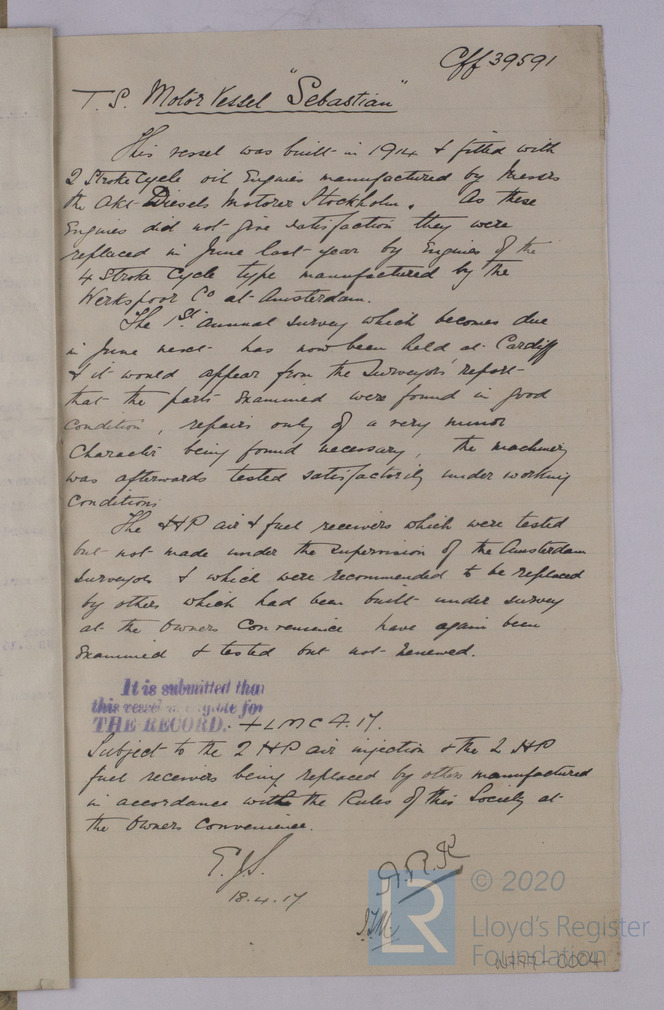 Cff 39591
T. S. Motor Vessel "Sebastian"
This vessel was built in 1914 & fitted with
2 Stroke Cycle oil Engines manufactured by Messrs
the Akt Diesels Motorer Stockholm. As these
Engines did not give satisfaction they were
replaced in June last year by Engines of the
4 Stroke Cycle type manufactured by the
Werkspoor Co at Amsterdam.
The 1st Annual Survey which becomes due
in June next has now been held at Cardiff
& it would appear from the Surveyors' report
that the parts examined were found in good
condition, repairs only of a very minor
character being found necessary, the machinery
was afterwards tested satisfactorily under working
conditions
The HP air & fuel receivers which were tested
but not made under the supervision of the Amsterdam
Surveyors & which were recommended to be replaced
by others which had been built under survey
at the Owners Convenience have again been
examined & tested but not renewed.
It is submitted that
this vessel is eligible for
THE RECORD. + LMC 4.17.
Subject to the 2 HP air injection & the 2 HP
fuel receivers being replaced by others manufactured
in accordance with the Rules of this Society at
the Owners Convenience.
E.J.S.
18.4.17
A.R.K
© 2020
Lloyd's Register
Foundation